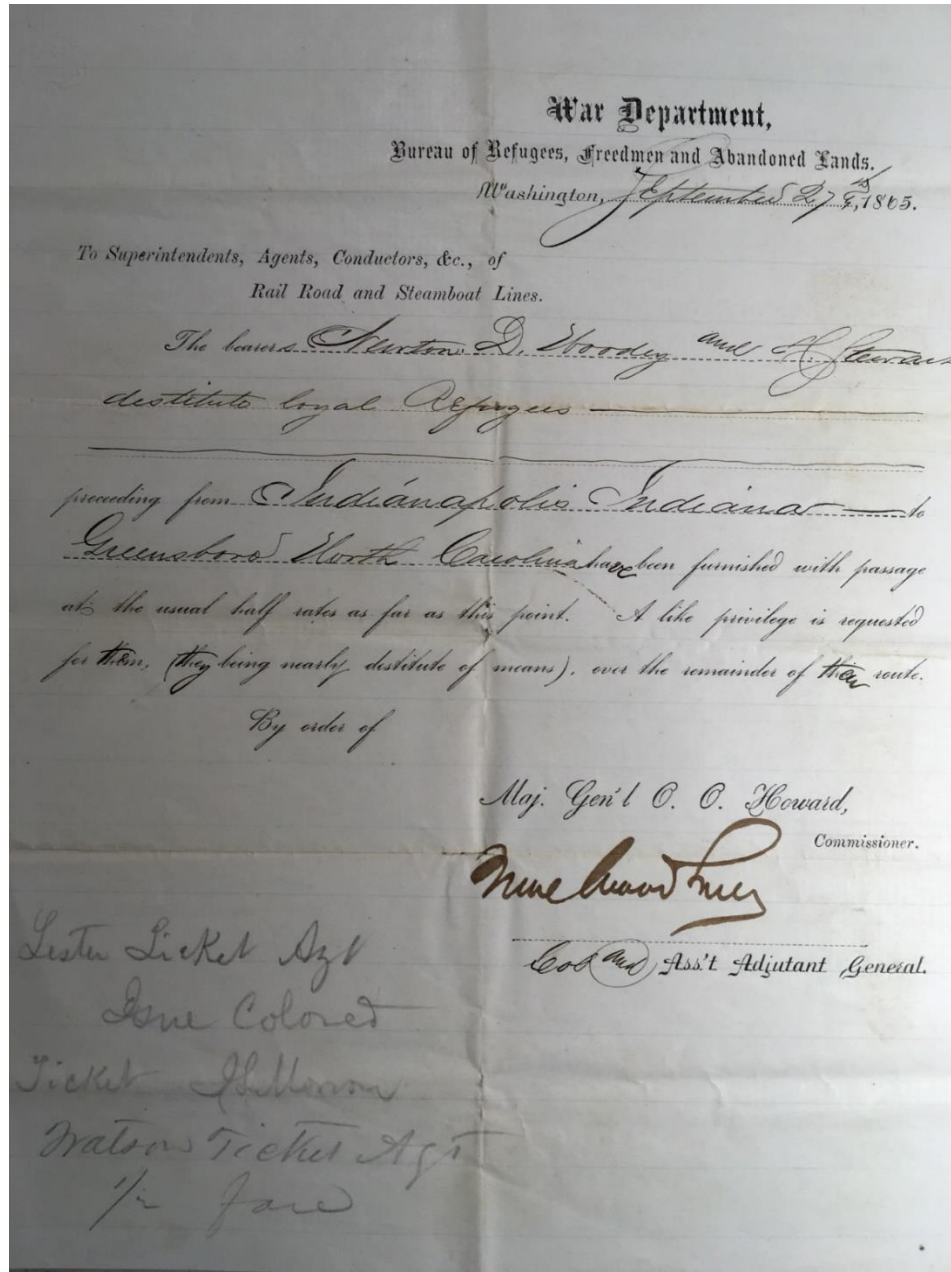 War Department,
Bureau of Refugees, Freedmen and Abandoned Lands.
Washington, September 27th, 1865.
To Superintendents, Agents, Conductors, &c., of
Rail Road and Steamboat Lines.
The bearers Newton D. Woody and H Stewart
destitute loyal Refugees
proceeding from Indianapolis Indiana to
Greensboro North Carolina have been furnished with passage
at the usual half rates as far as this point. A like privilege is requested
for them, (they being nearly destitute of means), over the remainder of their route.
By order of
Maj. Gen'l O. O. Howard,
Commissioner.
Col and Ass't Adjutant General.
Lester Ticket Agt
Issue Colored
Ticket
Watson Ticket Agt
1/2 fare